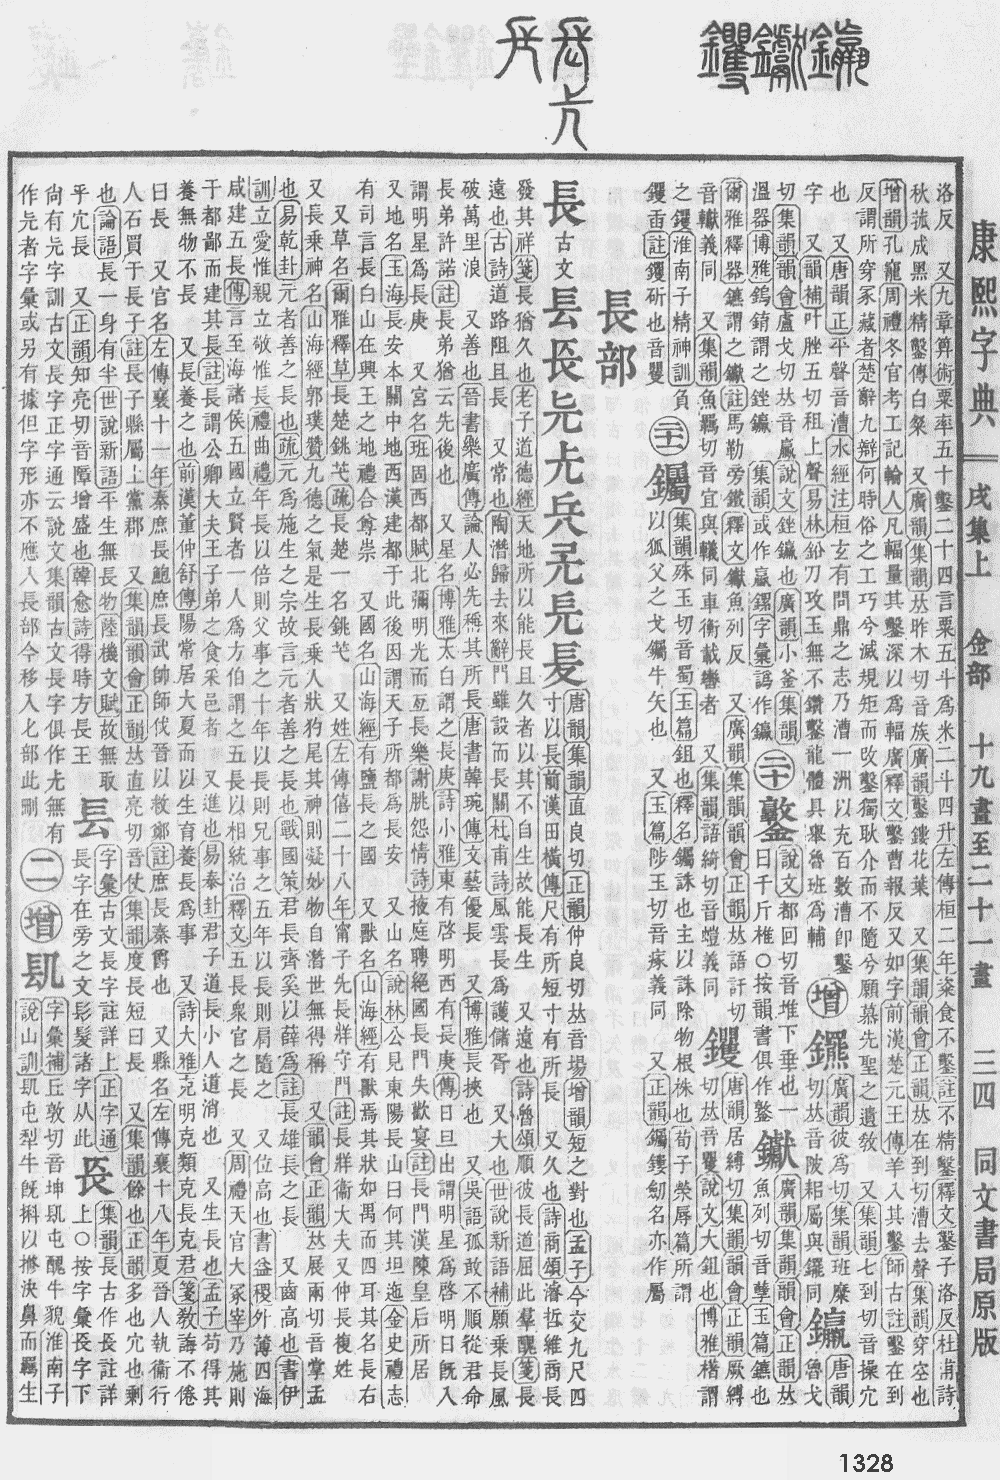 康熙字典 戌集上 金部 十九畫至二十一畫 三四 同文書局原版
洛反 又九章算術粟率五十鑿二十四言粟五斗爲米二斗四升左傳桓二年粢食不鑿註不精鑿釋文鑿子洛反杜甫詩
秋菰成黑米精鑿傳白粲 又廣韻集韻𠀤昨木切音族廣韻鑿鏤花葉 又集韻韻會正韻𠀤在到切音漕去聲集韻穿空也
增韻孔竉周禮冬官考工記輪人凡輻量其鑿深以爲輻廣釋文鑿曹報反又如字前漢楚元王傳羊入其鑿師古註鑿在到
反謂所穿冢藏者楚辭九辯何時俗之工巧兮滅規矩而改鑿獨耿介而不隨兮願慕先聖之遺敎 又集韻七到切音操穴
也 又唐韻正平聲音漕水經注桓玄有問鼎之志乃漕一洲以充百數漕卽鑿
字 又韻補叶脞五切租上聲易林鉛刀攻玉無不鑽鑿龍體具舉魯班爲輔
增 鑼 廣韻彼爲切集韻班糜切𠀤音陂耜屬與䥯同 鑘 唐韻魯戈
切集韻韻會盧戈切𠀤音羸說文銼鑘也廣韻小釜集韻
溫器博雅鎢錥謂之銼鑘 集韻或作𨰠鏍字彙譌作鏕
二十 鑿 說文都回切音堆下垂也一曰千斤椎○按韻書俱作鐜 钀 廣韻集韻韻會正韻𠀤魚列切音孽玉篇鑣也
爾雅釋器鑣謂之钀註馬勒旁鐵釋文钀魚列反 又廣韻集韻韻會正韻𠀤語訐切
音轙義同 又集韻魚羈切音宜與轙同車衡載轡者 又集韻語綺切音螘義同
钁 唐韻居縛切集韻韻會正韻厥縛切𠀤音矍說文大鉏也博雅櫡謂
之钁淮南子精神訓負钁臿註钁斫也音矍
二十一 钃 集韻殊玉切音蜀玉篇鉏也釋名钃誅也主以誅除物根株也荀子榮辱篇所謂
以狐父之戈钃牛矢也 又玉篇陟玉切音瘃義同 又正韻钃鏤劒名亦作屬
長部
長 古文 镸𠑷𠑿
唐韻集韻直良切正韻仲良切𠀤音場增韻短之對也孟子今交九尺四
寸以長前漢田橫傳尺有所短寸有所長 又久也詩商頌濬哲維商長
發其祥箋長猶久也老子道德經天地所以能長且久者以其不自生故能長生 又遠也詩魯頌順彼長道屈此羣醜箋長
遠也古詩道路阻且長 又常也陶潛歸去來辭門雖設而長關杜甫詩風雲長爲護儲胥 又大也世說新語補願乘長風
破萬里浪 又善也晉書樂廣傳論人必先稱其所長唐書韓琬傳文藝優長 又博雅長挾也 又吳語孤敢不順從君命
長弟許諾註長弟猶云先後也 又星名博雅太白謂之長庚詩小雅東有啓明西有長庚傳日旦出謂明星爲啓明日旣入
謂明星爲長庚 又宮名班固西都賦北彌明光而亙長樂謝朓怨情詩掖庭聘絕國長門失歡宴註長門漢陳皇后所居
又地名玉海長安本關中地西漢建都于此後因謂天子所都爲長安 又山名說林公見東陽長山曰何其坦迤金史禮志
有司言長白山在興王之地禮合尊崇 又國名山海經有鹽長之國 又獸名山海經有獸焉其狀如禺而四耳其名長右
又草名爾雅釋草長楚銚芅疏長楚一名銚芅 又姓左傳僖二十八年甯子先長牂守門註長牂衞大夫又仲長複姓
又長乗神名山海經郭璞贊九德之氣是生長乗人狀狗尾其神則凝妙物自潛世無得稱 又韻會正韻𠀤展兩切音掌孟
也易乾卦元者善之長也疏元爲施生之宗故言元者善之長也戰國策君長齊奚以薛爲註長雄長之長 又齒高也書伊
訓立愛惟親立敬惟長禮曲禮年長以倍則父事之十年以長則兄事之五年以長則肩隨之 又位高也書益稷外薄四海
咸建五長傳言至海諸侯五國立賢者一人爲方伯謂之五長以相統治釋文五長衆官之長 又周禮天官大冢宰乃施則
于都鄙而建其長註長謂公卿大夫王子弟之食采邑者 又進也易泰卦君子道長小人道消也 又生長也孟子苟得其
養無物不長 又長養之也前漢董仲舒傳陽常居大夏而以生育養長爲事 又詩大雅克明克類克長克君箋敎誨不倦
曰長 又官名左傳襄十一年秦庶長鮑庶長武帥師伐晉以救鄭註庶長秦爵也 又縣名左傳襄十八年夏晉人執衞行
人石買于長子註長子縣屬上黨郡 又集韻韻會正韻𠀤直亮切音仗集韻度長短曰長 又集韻餘也正韻多也冗也剩
也論語長一身有半世說新語平生無長物陸機文賦故無取
乎冗長 又正韻知亮切音障增盛也韓愈詩得時方長王
镸 字彙古文長字註詳上正字通長字在旁之文髟髮諸字从此 𨱗 集韻長古作𨱗註詳上○按字彙𨱗字下
尙有兂字訓古文長字正字通云說文集韻古文長字俱作𠑷無有
作兂者字彙或另有據但字形亦不應入長部今移入匕部此刪
二 增 镹 字彙補丘敦切音坤镹屯醜牛貌淮南子說山訓镹屯犁牛旣㸺以㹌決鼻而羈生
1328